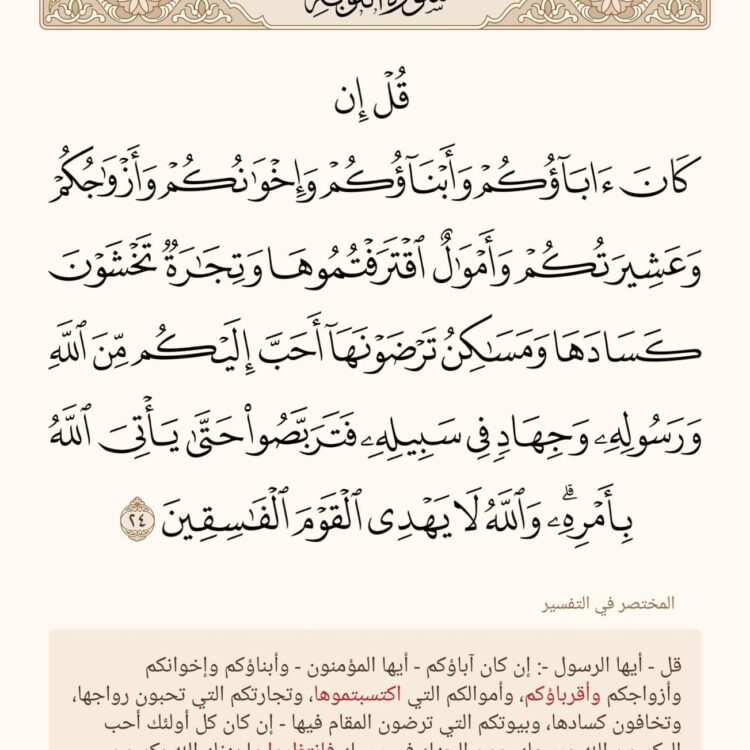 سورة التوبة
قُلْ إِن
كَانَ ءَابَآؤُكُمْ وَأَبْنَآؤُكُمْ وَإِخْوَٰنُكُمْ وَأَزْوَٰجُكُمْ
وَعَشِيرَتُكُمْ وَأَمْوَٰلٌ ٱقْتَرَفْتُمُوهَا وَتِجَٰرَةٌ تَخْشَوْنَ
كَسَادَهَا وَمَسَٰكِنُ تَرْضَوْنَهَآ أَحَبَّ إِلَيْكُم مِّنَ ٱللَّهِ
وَرَسُولِهِۦ وَجِهَادٍ فِى سَبِيلِهِۦ فَتَرَبَّصُوا۟ حَتَّىٰ يَأْتِىَ ٱللَّهُ
بِأَمْرِهِۦ ۗ وَٱللَّهُ لَا يَهْدِى ٱلْقَوْمَ ٱلْفَٰسِقِينَ ٢٤
المختصر في التفسير
قل - أيها الرسول -: إن كان آباؤكم - أيها المؤمنون - وأبناؤكم وإخوانكم
وأزواجكم وأقرباؤكم، وأموالكم التي اكتسبتموها، وتجارتكم التي تحبون رواجها،
وتخافون كسادها، وبيوتكم التي ترضون المقام فيها - إن كان كل أولئك أحب